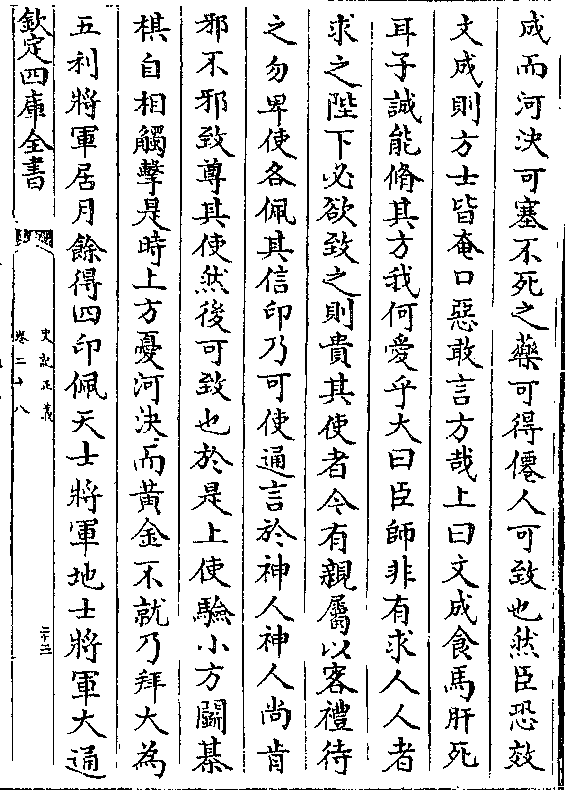 成而河決可塞不死之藥可得僊人可致也然臣恐效
文成則方士皆奄口惡敢言方哉上曰文成食馬肝死
耳子誠能脩其方我何愛乎大曰臣師非有求人人者
求之陛下必欲致之則貴其使者令有親屬以客禮待
之勿卑使各佩其信印乃可使通言於神人神人尚肯
邪不邪致尊其使然後可致也於是上使驗小方鬭綦
棋自相觸擊是時上方憂河決而黃金不就乃拜大為
五利將軍居月餘得四印佩天士將軍地士將軍大通
欽定四庫全書
史記正義
卷二十八
二十三